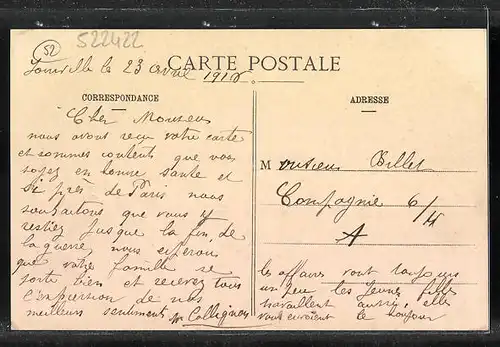 52
522422
CARTE POSTALE
Joinville le 23 avril 1918
CORRESPONDANCE
ADRESSE
Cher Monsieur
nous avons reçu votre carte
et sommes contents que vous
soyez en bonne santé et
si près de Paris nous
souhaitons que vous y
restiez jusque la fin de
la guerre, nous espérons
que votre famille se
porte bien et recevez tous
l'expression de nos
meilleurs sentiments Collignon
Monsieur Billet
Compagnie 6/4
A
les affaires vont toujours
un peu les jeunes filles
travaillent aussi, elles
vous envoient le bonjour